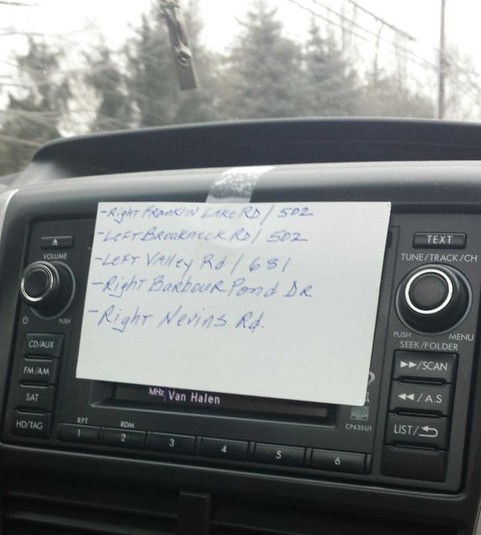 -Right Franklin Lake RD / 502
-Left Breakneck RD / 502
-Left Valley Rd / 681
-Right Barbour Pond DR
-Right Nevins Rd.
TEXT
VOLUME
TUNE/TRACK/CH
PUSH
PUSH MENU
SEEK/FOLDER
CD/AUX
▶▶/SCAN
FM/AM
SAT
◀◀/A.S
MHz Van Halen
HD/TAG
RPT RDM
LIST/
CP635U1
1 2 3 4 5 6